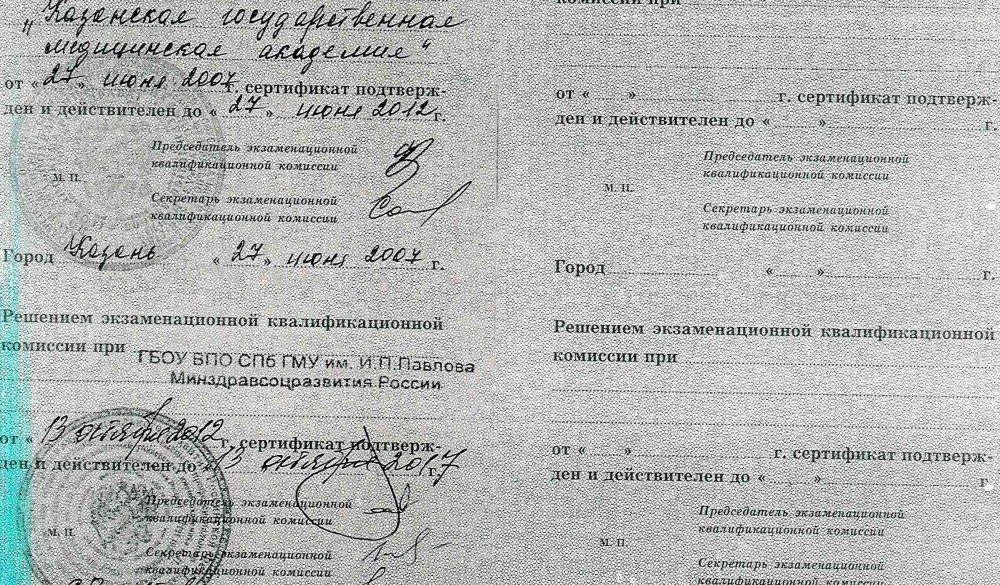 "Казанская государственная
медицинская академия"
от «27» июня 2007 г. сертификат подтверж-
ден и действителен до «27» июня 2012 г.
Председатель экзаменационной
квалификационной комиссии
М. П.
Секретарь экзаменационной
квалификационной комиссии
Город Казань «27» июня 2007 г.
Решением экзаменационной квалификационной
комиссии при ГБОУ ВПО СПб ГМУ им. И.П.Павлова
Минздравсоцразвития России
от «13 октября 2012 г. сертификат подтверж-
ден и действителен до «13 октября 2017 г.
Председатель экзаменационной
квалификационной комиссии
М. П.
Секретарь экзаменационной
квалификационной комиссии
комиссии при
от « » г. сертификат подтверж-
ден и действителен до « » г.
Председатель экзаменационной
квалификационной комиссии
М. П.
Секретарь экзаменационной
квалификационной комиссии
Город « » г.
Решением экзаменационной квалификационной
комиссии при
от « » г. сертификат подтверж-
ден и действителен до « » г.
Председатель экзаменационной
квалификационной комиссии
М. П.
Секретарь экзаменационной
квалификационной комиссии